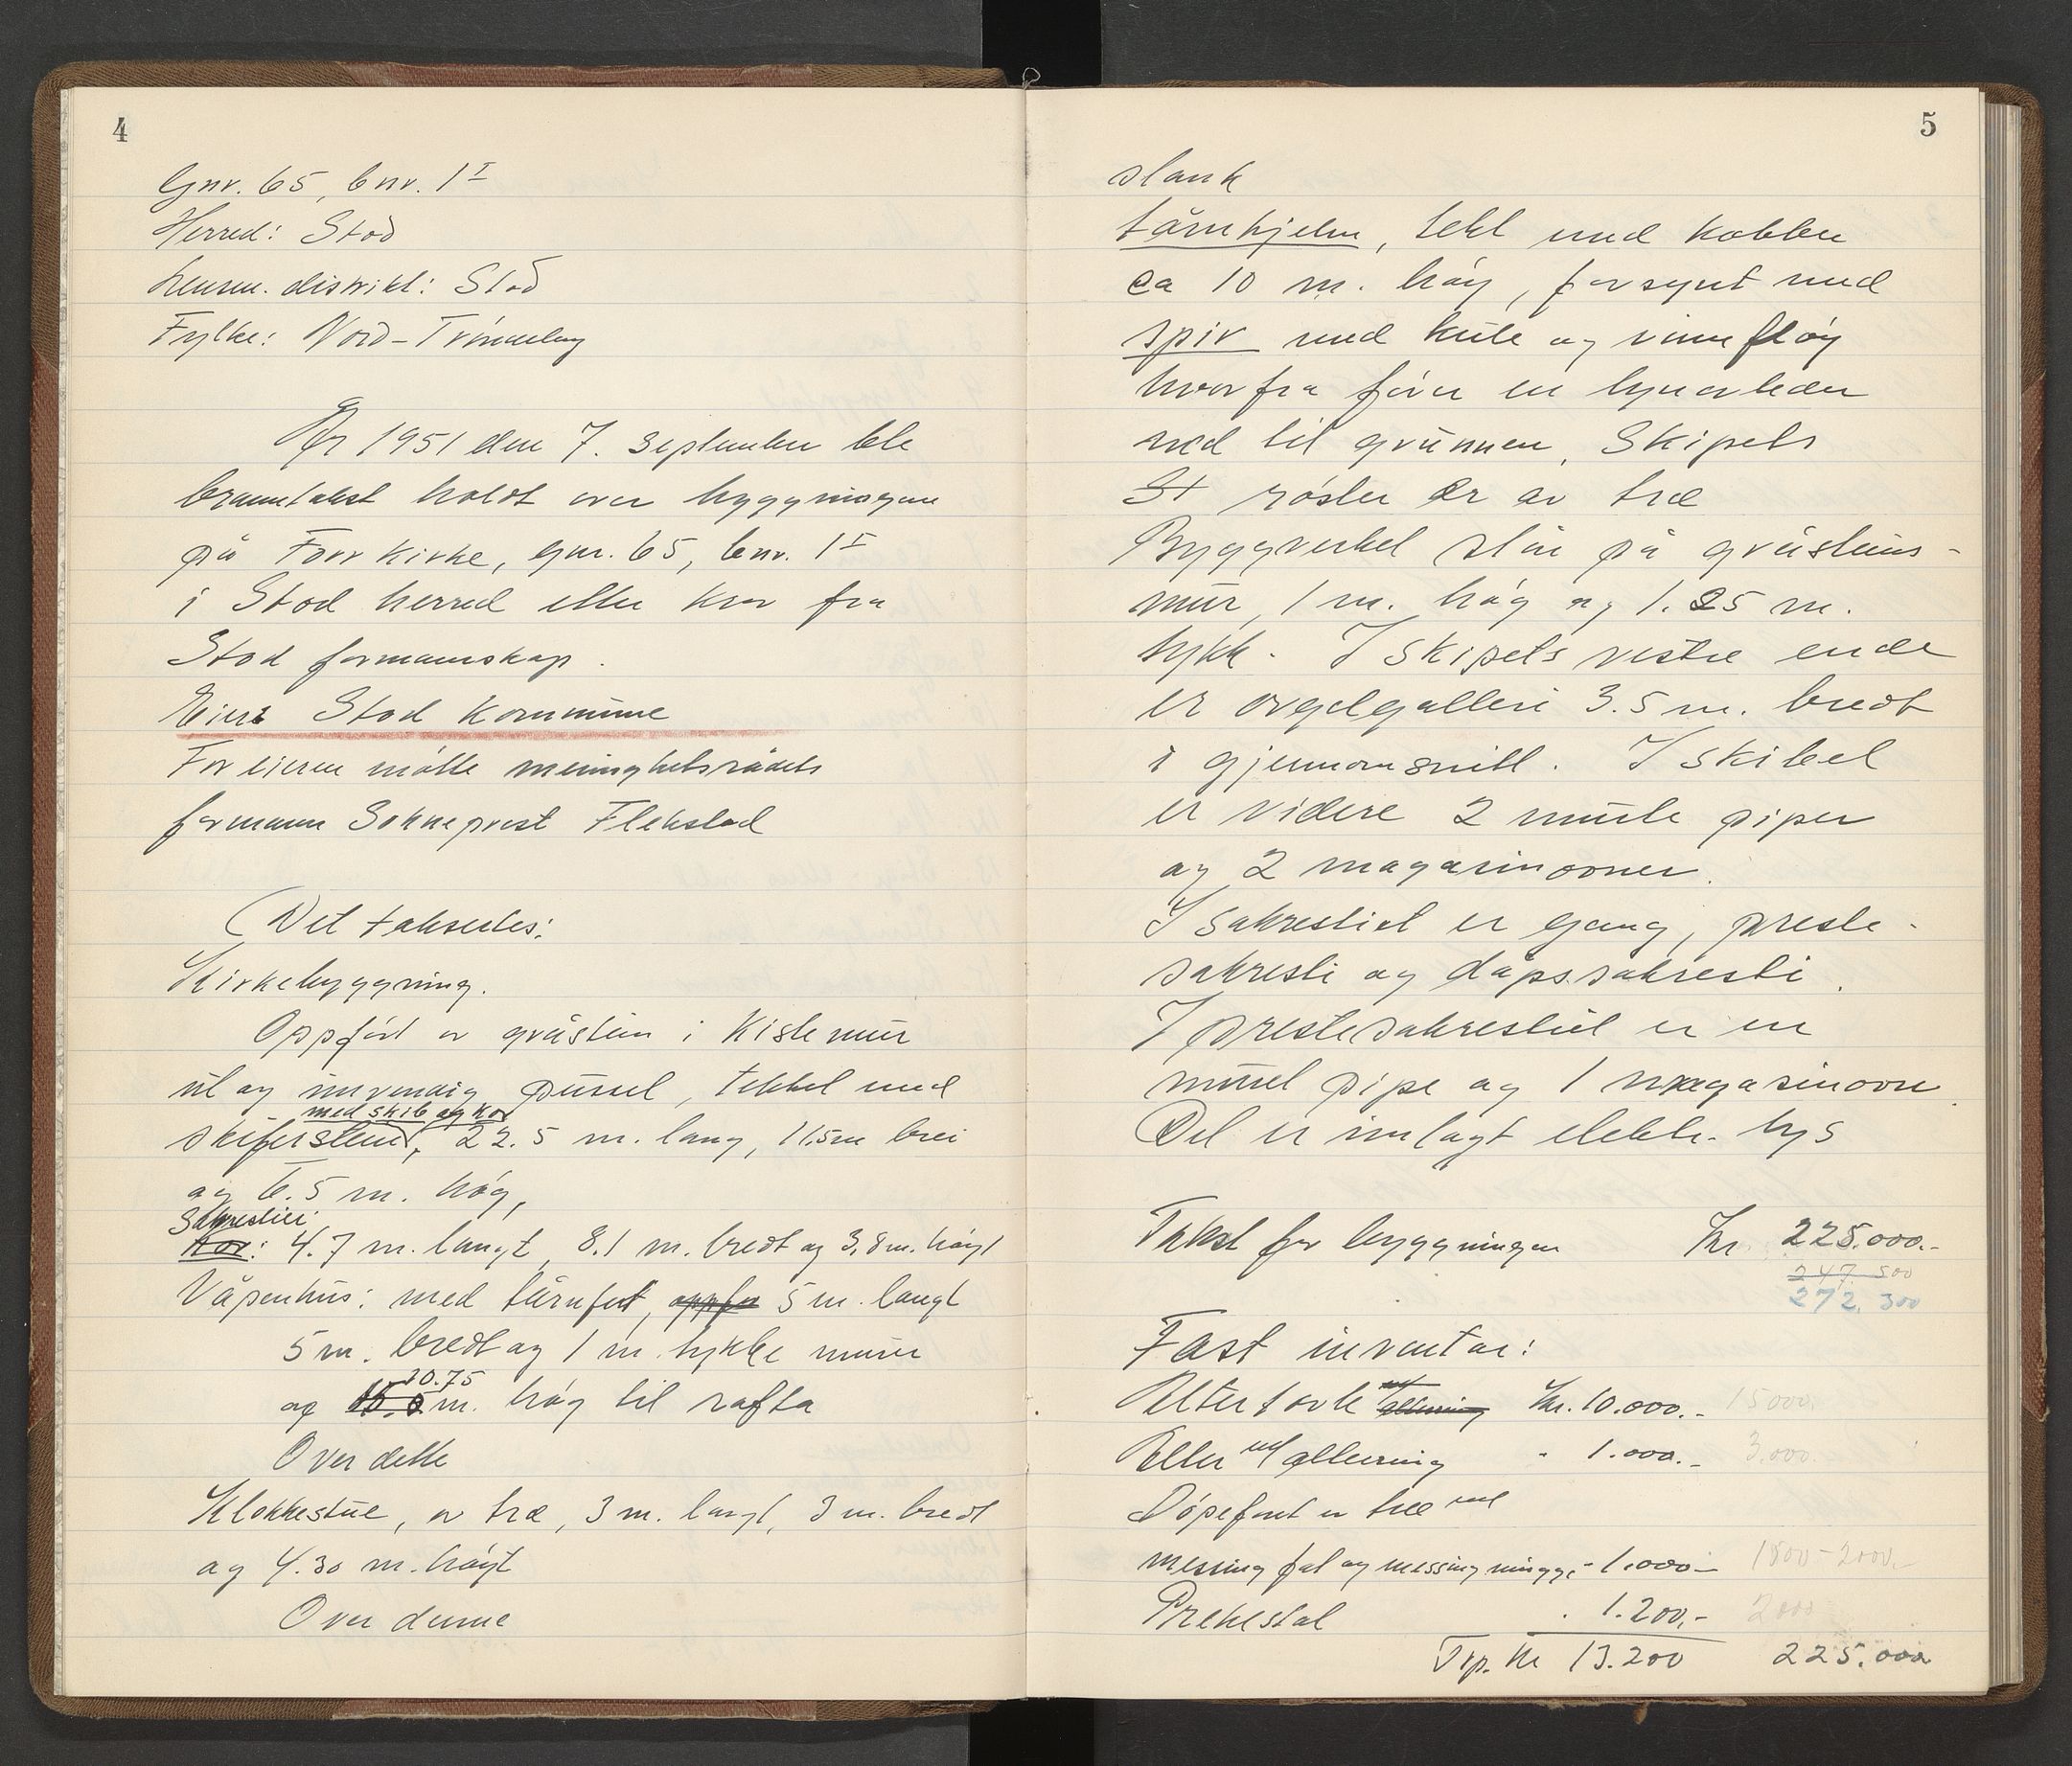 4
Gnr. 65, bnr. 1 I
Herred: Stod
Lensm. distrikt: Stod
Fylke: Nord-Trøndelag
År 1951 den 7. september ble
branntakst holdt over bygningene
på For kirke, gnr. 65, bnr. 1 I
i Stod herred etter krav fra
Stod formannskap.
Eier: Stod kommune
For eieren møtte menighetsrådets
formann Sokneprest Flekstad
Det takseres:
Kirkebygning.
Oppført av gråstein i Kistemur
ut og innvendig pusset, tekket med
med skib og kor
skiferstein, 22.5 m. lang, 11.5 m brei
og 6.5 m. høg,
Sakristiet
Kor: 4.7 m. langt, 8.1 m. bredt og 3,8 m. høgt
Våpenhus: med tårnfot, oppfø 5 m. langt
5 m. bredt og 1 m. tykke murer
10.75
og m. høg til rafta
Over dette
Klokkestue, av træ, 3 m. langt, 3 m. bredt
og 4.30 m. høgt
Over denne
5
slank
tårnhjelm, tekt med kobber
ca 10 m. høg, forsynt med
spir med kule og vinnfløy
hvorfra fører en lynavleder
ned til grunnen. Skipets
St røster er av træ
Byggverket står på gråsteins-
mur, 1 m. høg og 1.25 m.
tykk. I skipets vestre ende
er orgelgalleri 3.5 m. bredt
i gjennomsnitt. I skibet
er videre 2 murte piper
og 2 magasinovner.
I sakrestiet er gang, preste-
sakresti og dåpssakresti.
I prestesakrestiet er en
muret pipe og 1 magasinovn.
Det er innlagt elektr. lys
Takst for bygningen Kr 225.000.-
247.500
272.300
Fast inventar:
Altertavle m/ altering Kr. 10.000.- 15000.
Alter m/ altering " 1.000.- 3.000.
Døpefont av træ med
messing fat og messing mugge - 1.000.- 1800-2000.-
Prekestol " 1.200.- 2000
Trp. kr 13.200 225.000